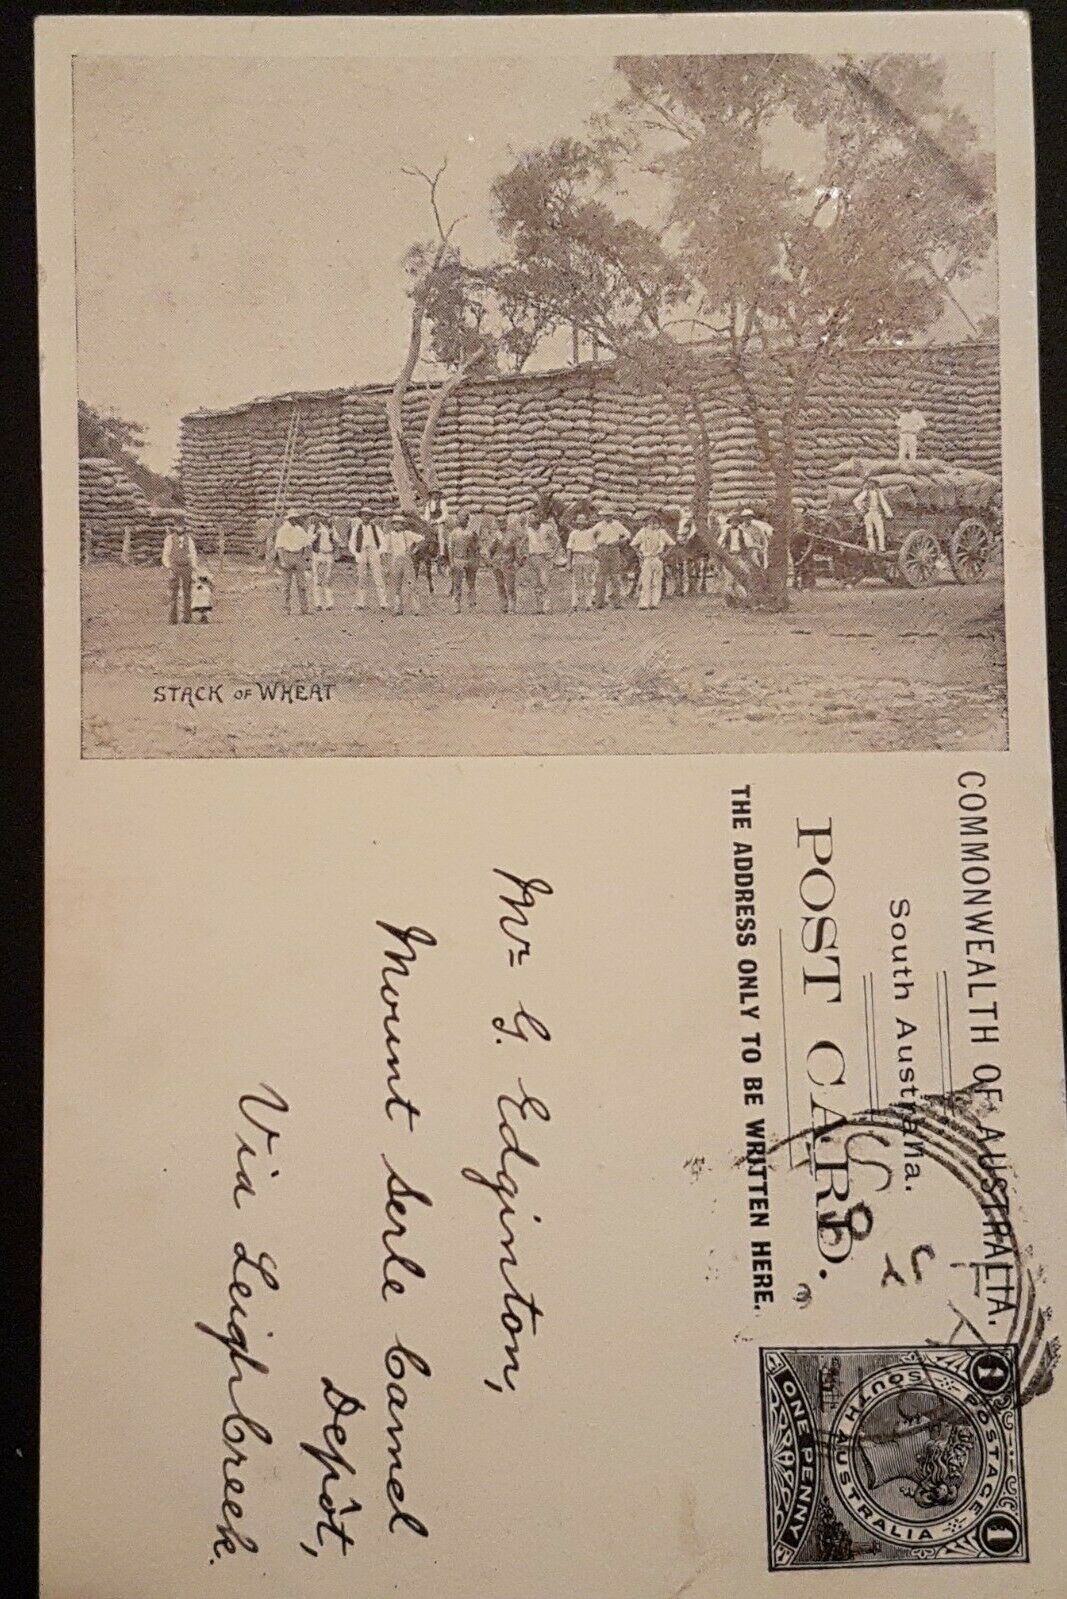 STACK OF WHEAT
COMMONWEALTH OF AUSTRALIA.
South Australia.
POST CARD.
THE ADDRESS ONLY TO BE WRITTEN HERE.
Mr G. Edginton,
Mount Serle Camel
Depôt,
Via Leigh Creek.
POSTAGE
SOUTH AUSTRALIA
1 1
ONE PENNY